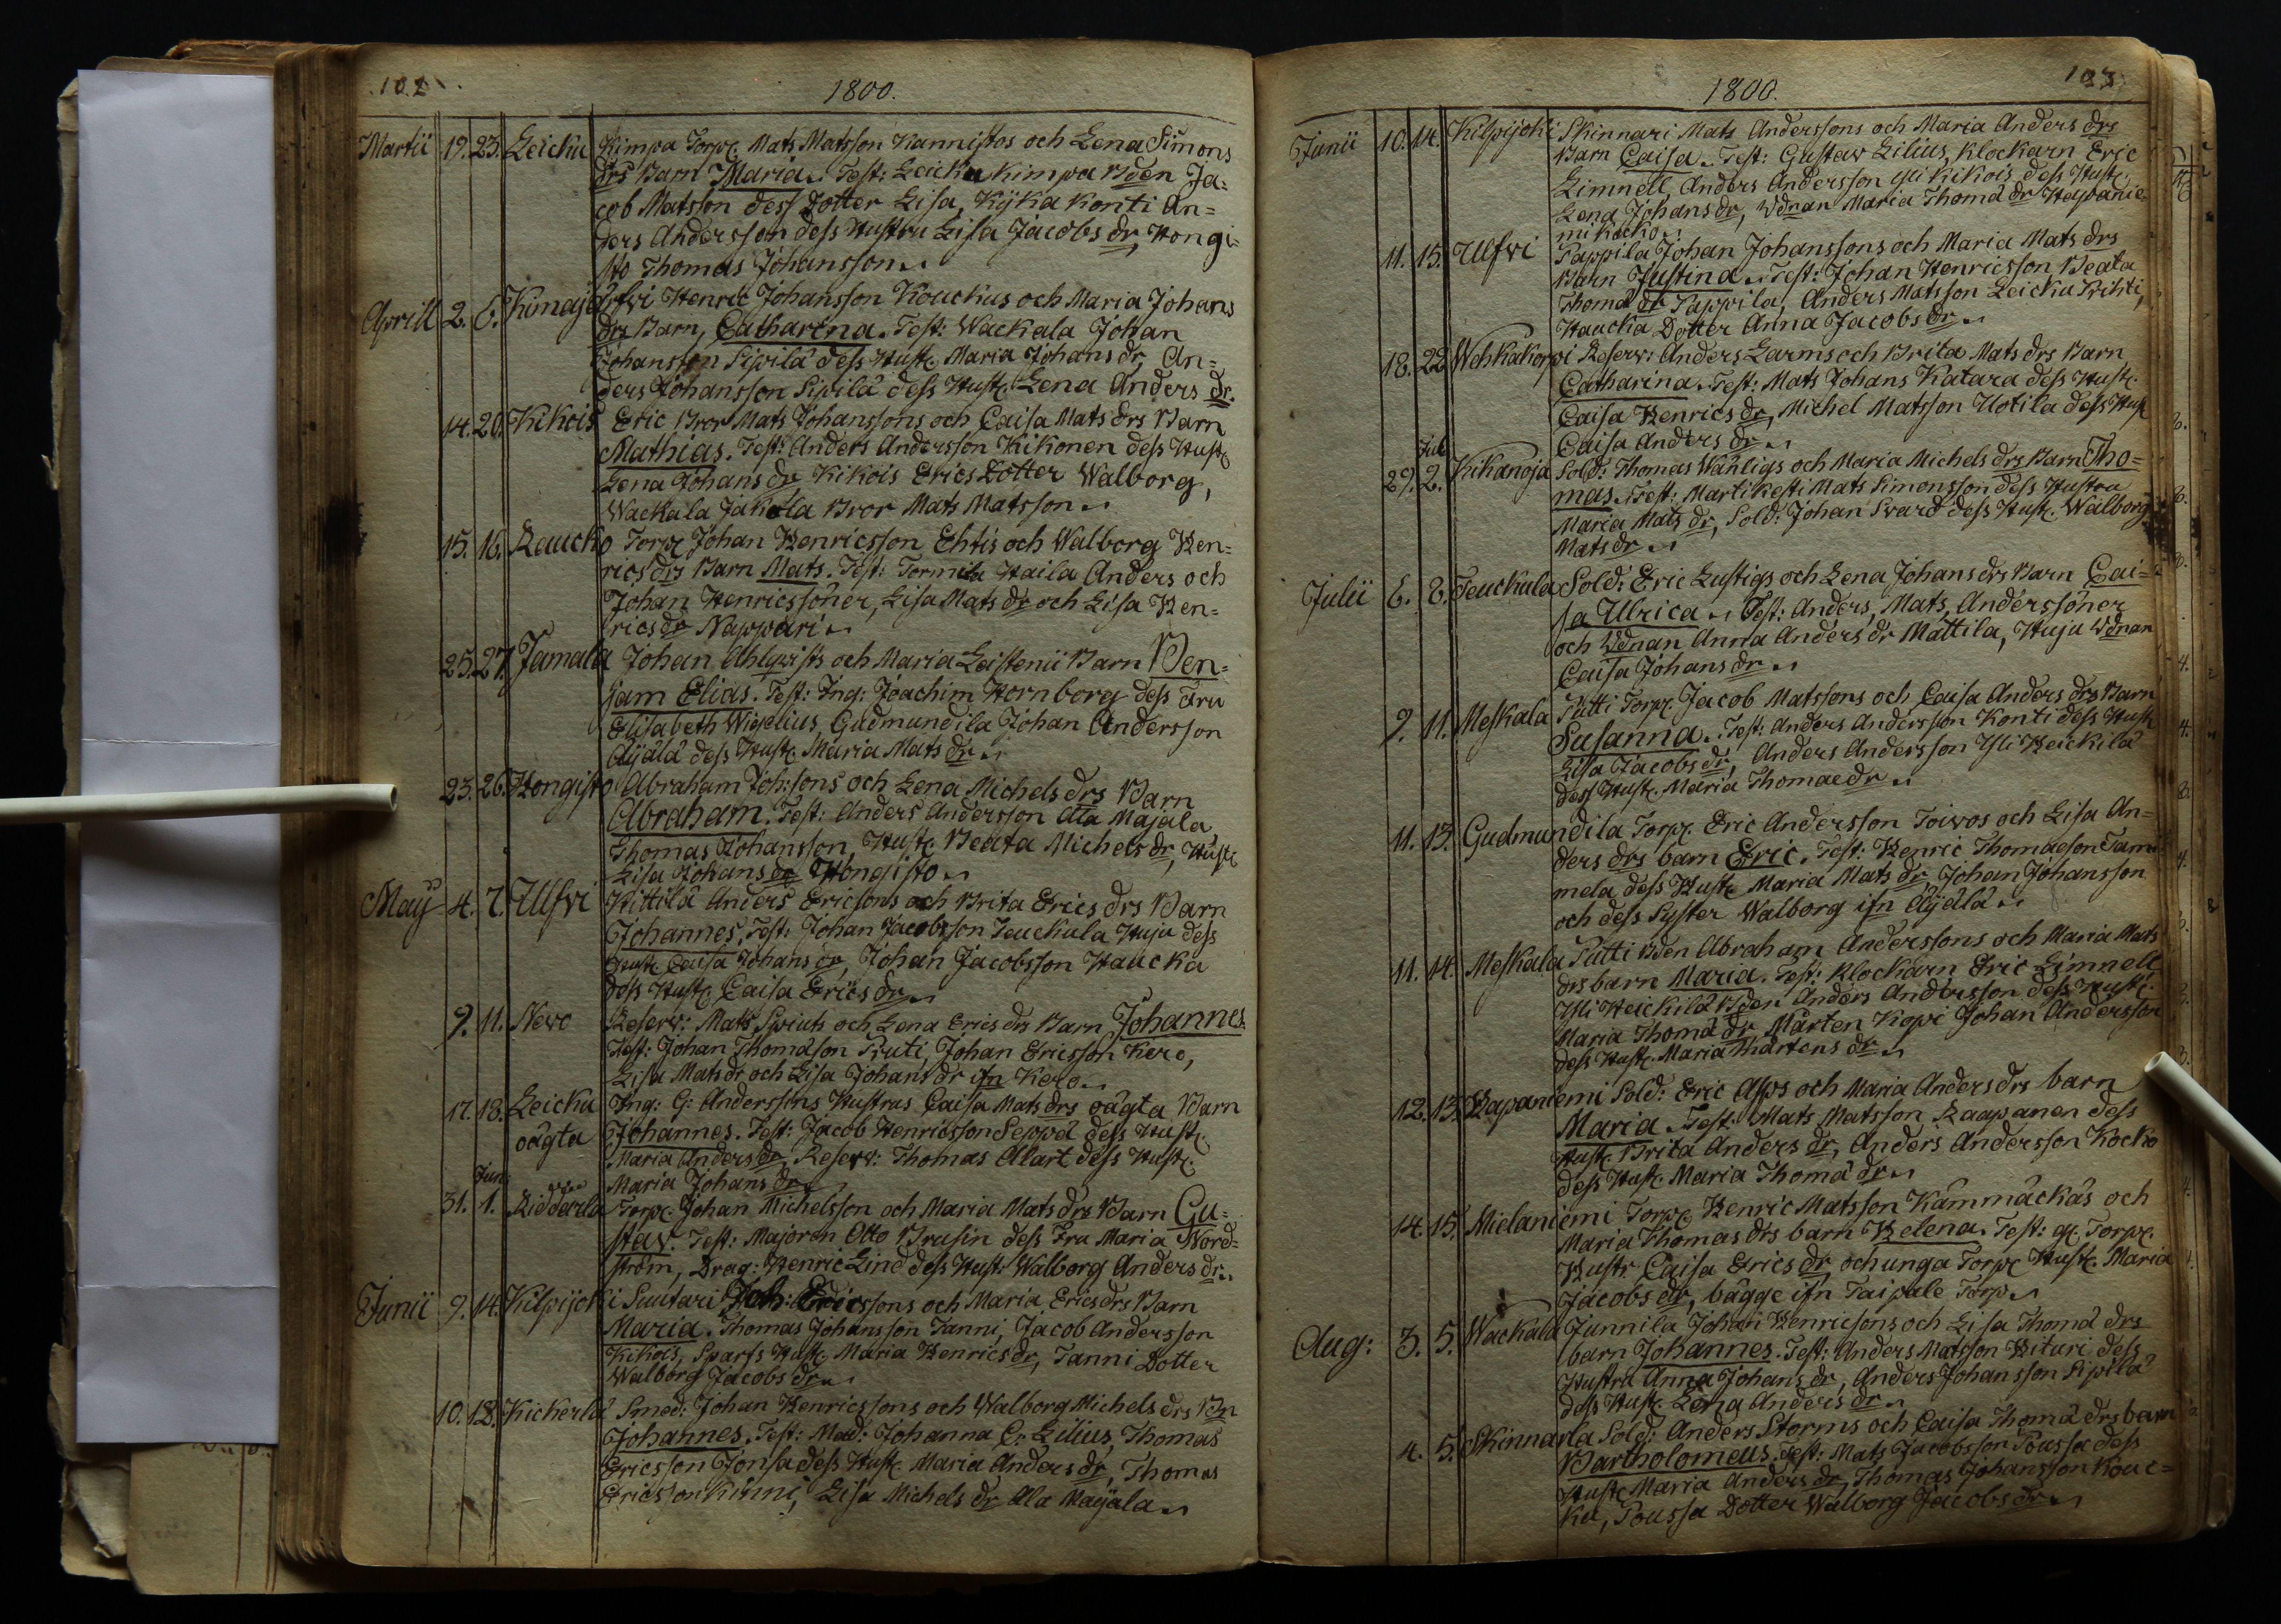 102
1800.
Martii 19. 23. Leicku Kimpa Torp. Mats Matsson Kannistos och Lena Simons
drs Barn Maria. Test: Leicku Kimpa Bden Ja=
cob Matsson dess Dotter Lisa, Kyka Konti An=
ders Andersson dess Hustru Lisa Jacobs dr, Hongi=
sto Thomas Johansson
Aprill 2. 6. Kimajärfvi Henric Johansson Kouckus och Maria Johans
drs Barn, Catharina. Test: Wackala Johan
Johansson Sipilä dess Hust. Maria Johans dr, An=
ders Johansson Sipilä dess Hust. Lena Anders dr.
14. 20. Kikois Eric Bror Mats Johanssons och Caisa Mats drs Barn
Mathias. Test: Anders Andersson Kikonen dess Hust.
Lena Johans dr Kikois Erics Dotter Walborg,
Wackala Jakola Bror Mats Matsson
15. 16. Raucko Torp. Johan Henricsson Ehtis och Walborg Hen=
rics drs Barn Mats. Test: Tormila Haila Anders och
Johan Henricssöner, Lisa Mats dr och Lisa Hen=
rics dr Nappari
25. 27. Jamala Johan Ahlqvists och Maria Leistenii Barn Ben=
jam Elias. Test: Ing: Joachim Hornborg dess Fru
Elisabeth Wigelius Gudmundila Johan Andersson
Äijälä dess Hust. Maria Mats dr
23. 26. Hongisto Abraham Joh:sons och Lena Michels drs Barn
Abraham. Test: Anders Andersson Ala Majala,
Thomas Johansson, Hust. Beata Michels dr, Hust.
Lisa Johans dr Hongisto
Maij 4. 7. Ulfvi Kittilä Anders Ericsons och Brita Erics drs Barn
Johannes, Test: Johan Jacobsson Teuckula Huju dess
Hust. Caisa Johans dr, Johan Jacobsson Haucka
dess Hust. Caisa Erics dr
9. 11. Nevo Reserv: Mats Spiuts och Lena Erics drs Barn Johannes.
Test: Johan Thomäson Pruti, Johan Ericsson Kero,
Lisa Mats dr och Lisa Johans dr ifn Kero
17. 18. Leicku Ing: G: Anderssons Hustrus Caisa Mats drs oägta Barn
oägta Johannes. Test: Jacob Henricsson Seppä dess Hust.
Maria Anders dr, Reserv: Thomas Alart dess Hust.
Jun: Maria Johans dr
31. 1. Ridderla Torp. Johan Michelsson och Maria Mats drs Barn Gu=
stav. Test: Majoren Otto Brusin dess Fru Maria Nord=
ström, Drag: Henric Lind dess Hust: Walborg Anders dr
Junii 9. 14. Kilpijoki Suutari Joh: Ericssons och Maria Erics drs Barn
Maria. Thomas Johansson Tanni, Jacob Andersson
Kikois, Sparfs Hust. Maria Henrics dr, Tanni Dotter
Walborg Jacobs dr
10. 18. Kickerlä Smed: Johan Henricssons och Walborg Michels drs Bn
Johannes. Test: Mad: Johanna C: Lilius, Thomas
Ericsson Jonsa dess Hust. Maria Anders dr, Thomas
Ericsson Kinni, Lisa Michels dr Ala Majala
103
1800.
Junii 10. 14. Kilpijoki Skinnari Mats Anderssons och Maria Anders drs
Barn Caisa. Test: Gustav Lilius, Klockarn Eric
Limnell Anders Andersson Yli Kikois dess Hust.
Lena Johans dr, Wdnan Maria Thomä dr Hapanie=
mi Kocko
11. 15. Ulfvi Pappila Johan Johanssons och Maria Mats drs
Barn Justina. Test: Johan Henricsson, Beata
Thomä dr Pappila, Anders Matsson Leicku Prihti,
Haucka Dotter Anna Jacobs dr
18. 22 Wehkakorpi Reserv: Anders Larms och Brita Mats drs Barn
Catharina. Test: Mats Johans Katara dess Hust.
Caisa Henrics dr, Michel Matsson Uotila dess Hust
Jul: Caisa Anders dr
29. 2. Kikanoja Sold: Thomas Wänligs och Maria Michels drs Barn Tho=
mas. Test: Martikesti Mats Simonsson dess Hustru
Maria Mats dr, Sold: Johan Svärd dess Hust. Walborg
Mats dr
Julii 6. 8. Teuckula Sold: Eric Lustigs och Lena Johans drs Barn Cai=
sa Ulrica. Test: Anders, Mats, Anderssöner
och Wdnan Anna Anders dr Mattila, Huju Wdnan
Caisa Johans dr
9. 11. Meskala Putti Torp. Jacob Matssons och Caisa Anders drs Barn
Susanna. Test: Anders Andersson Konti dess Hust
Lisa Jacobs dr, Anders Andersson Yli Heickilä
dess Hust. Maria Thomae dr
11. 13. Gudmundila Torp. Eric Andersson Toivos och Lisa An=
ders drs barn Eric. Test: Henric Thomaeson Tam=
mela dess Hust. Maria Mats dr Johan Johansson
och dess Syster Walborg ifn Äijälä
11. 14. Meskala Putti Bden Abraham Anderssons och Maria Mats
drs barn Maria. Test: Klockarn Eric Limnell
Yli Heickilä Bden Anders Andersson dess Hust.
Maria Thomä dr Mårten Kopi Johan Andersson
dess Hust. Maria Mårtens dr
12. 13. Hapaniemi Sold: Eric Asps och Maria Anders drs barn
Maria. Test: Mats Matsson Raapanen dess
Hust. Brita Anders dr, Anders Andersson Kocko
dess Hust. Maria Thomä dr
14. 15. Mielaniemi Torp. Henric Matsson Kämmäckäs och
Maria Thomas drs barn Helena. Test: gl. Torp.
Hustr. Caisa Erics dr och unga Torp. Hust. Maria
Jacobs dr, bägge ifn Taipale Torp
Aug: 3. 5. Wackala Junnila Johan Henricsons och Lisa Thomä drs
barn Johannes. Test: Anders Matsson Hituri dess
Hustru Anna Johans dr, Anders Johansson Sipilä
dess Hust. Lena Anders dr
4. 5. Skinnarla Sold: Anders Storms och Caisa Thomä drs barn
Bartholomeus. Test: Mats Jacobsson Poussa dess
Hust. Maria Anders dr, Thomas Johansson Kouc=
ku, Poussa Dotter Walborg Jacobs dr